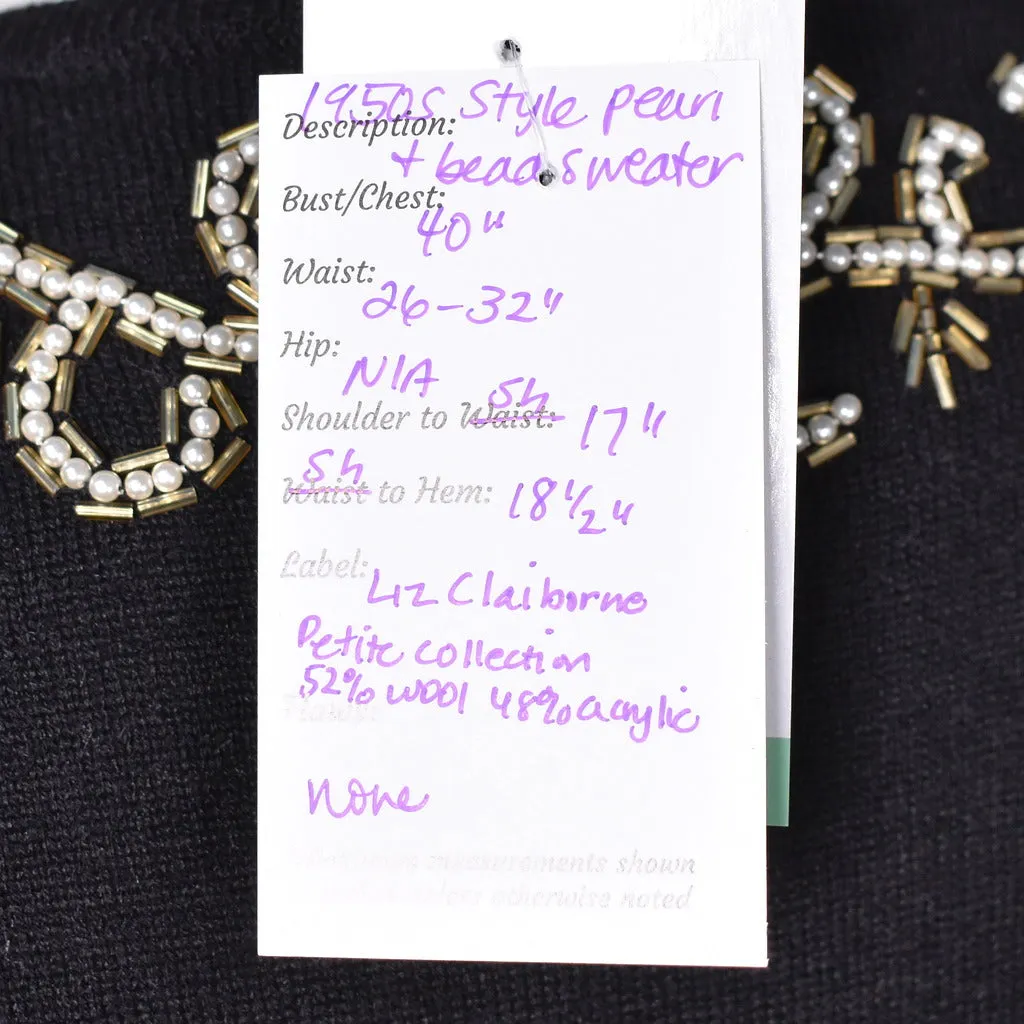 1950s Style pearl
Description:
+ bead sweater
Bust/Chest:
40"
Waist:
26-32"
Hip:
N/A
Sh
Shoulder to Waist: 17"
Sh
Waist to Hem: 18 1/2"
Label:
Liz Claiborne
Petite collection
52% wool 48% acrylic
none
measurements shown
unless otherwise noted